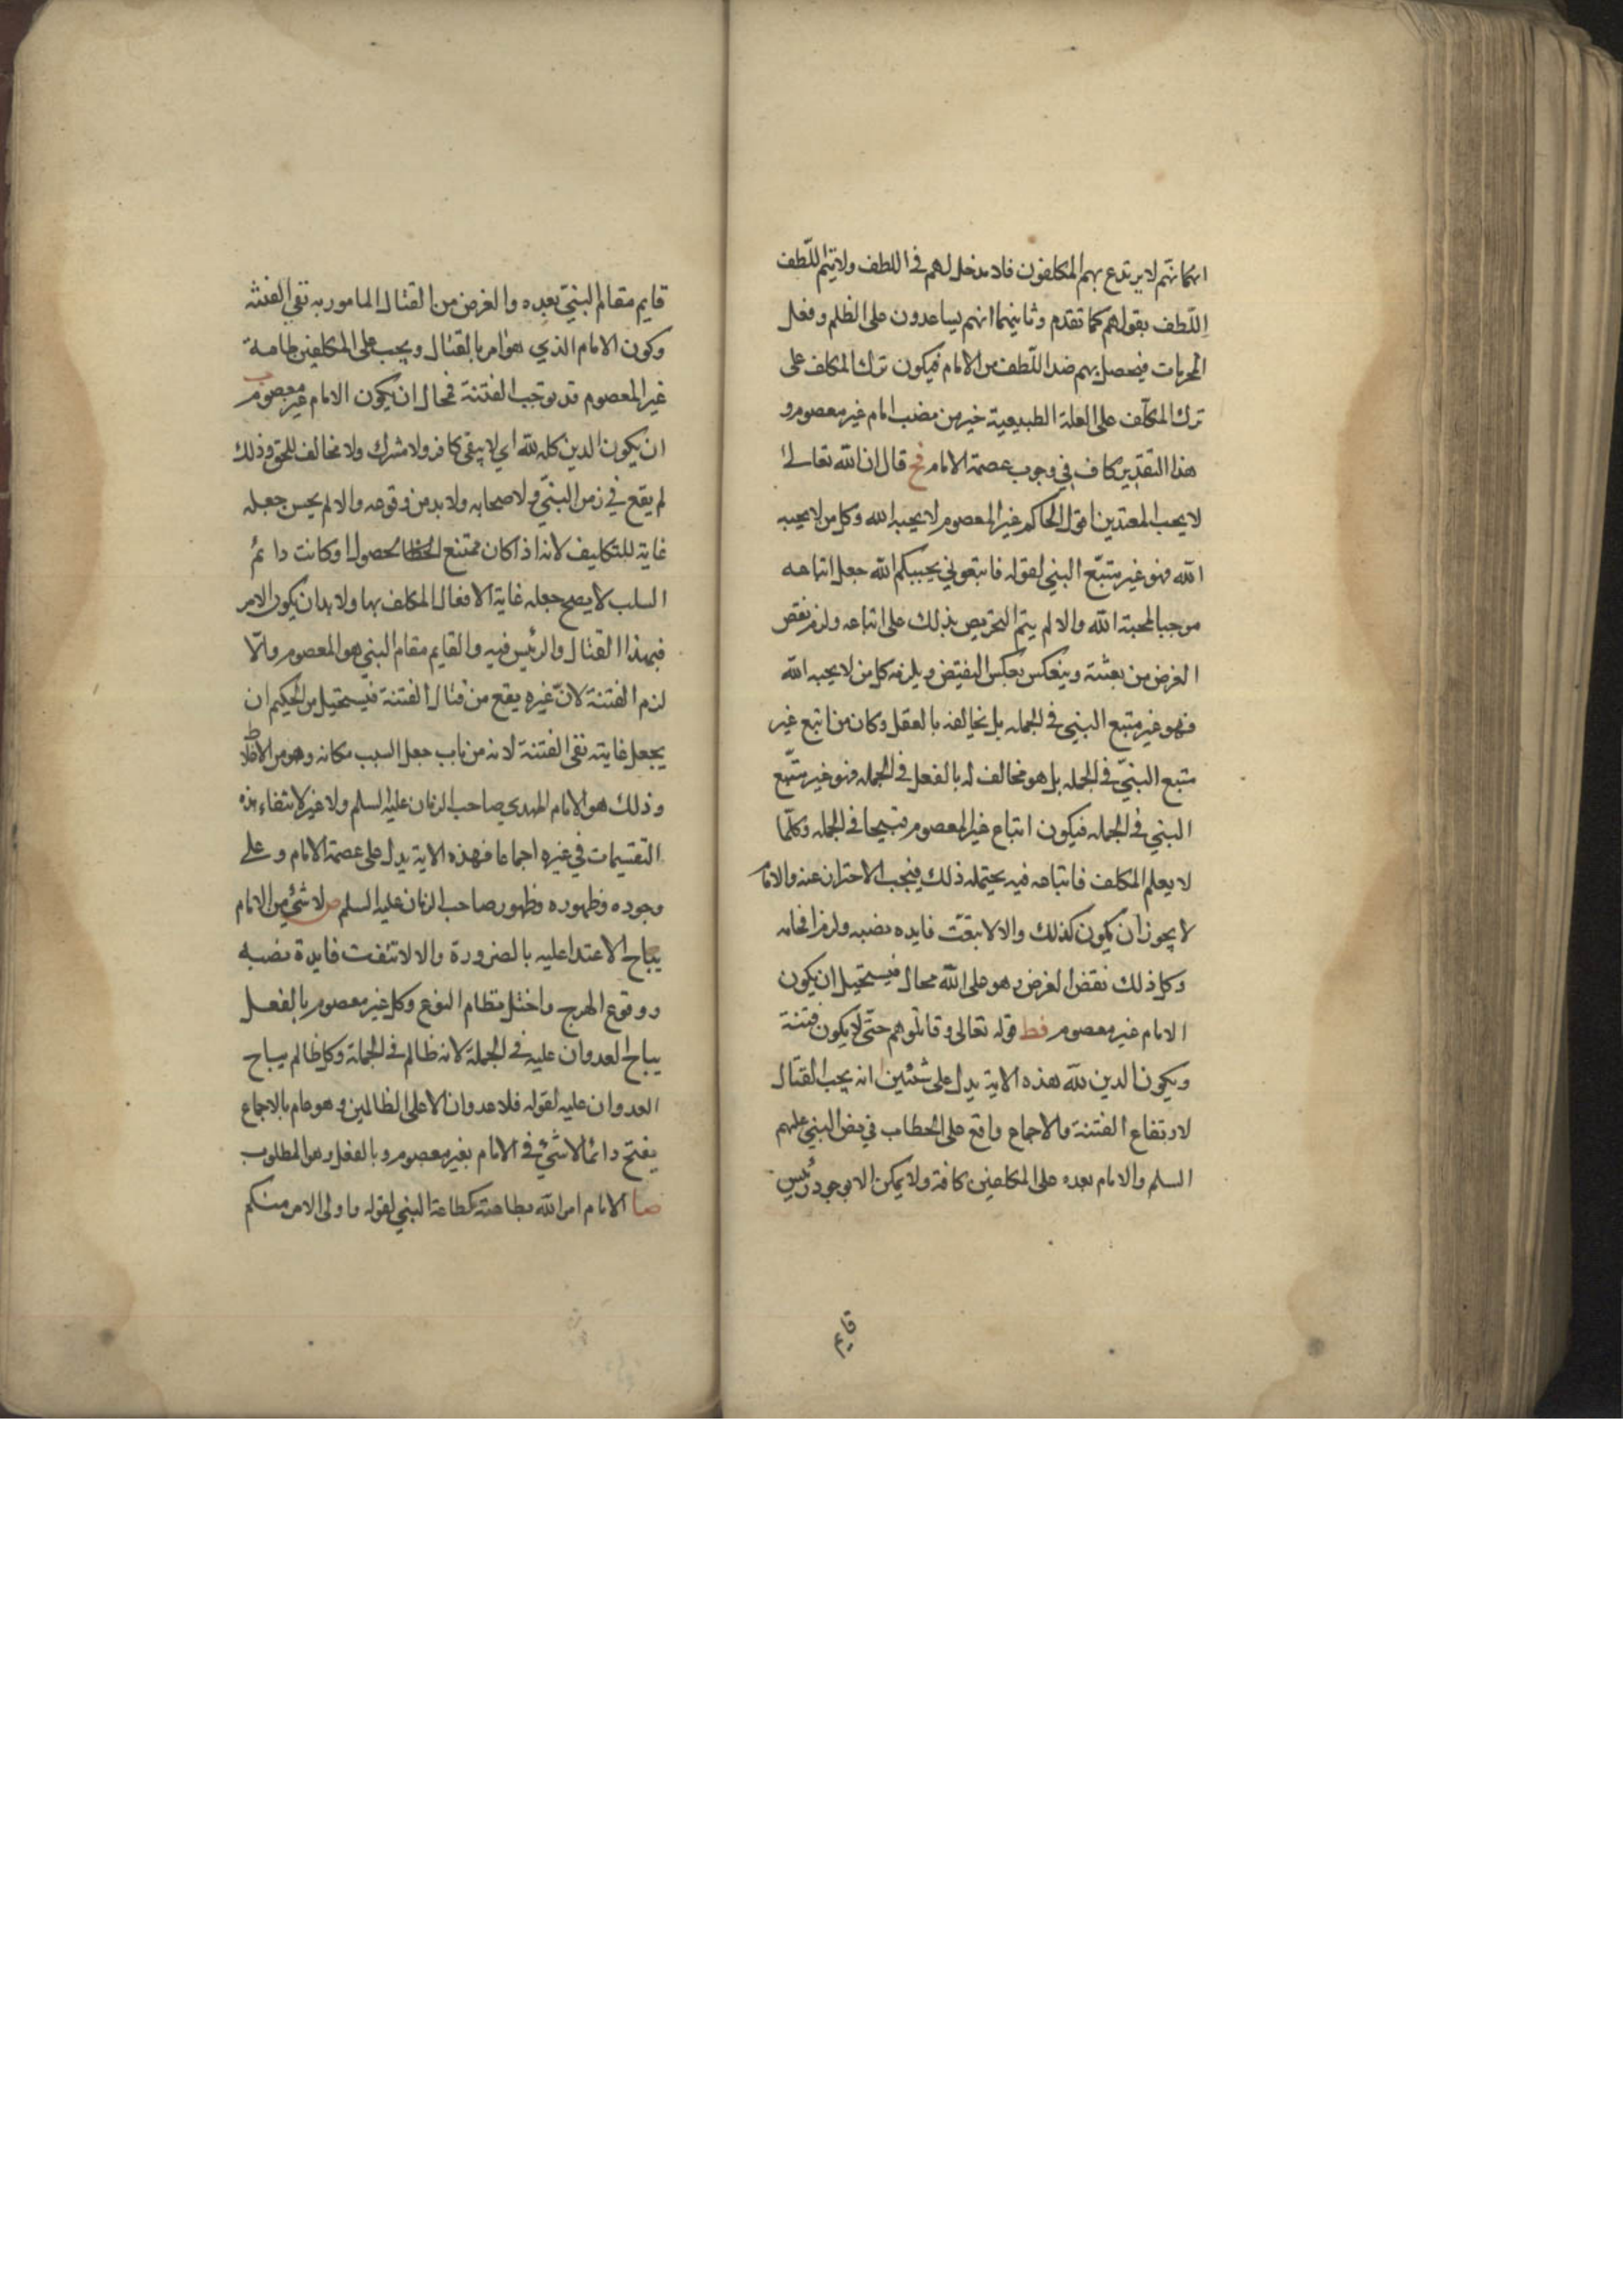 انهما نهم لا يرتدع بهم المكلفون فلا مدخل لهم في اللطف ولا يتم اللطف
اللطف بقولهم كما تقدم وثانيهما انهم يساعدون على الظلم وفعل
المحرمات فيحصل بهم ضد اللطف من الامام فيكون ترك المكلف على
ترك المكلف على العلة الطبيعية خير من نصب امام غير معصوم و
هذا التقدير كاف في وجوب عصمة الامام فح قال ان الله تعالى
لا يحب المعتدين اقول الحاكم غير المعصوم لا يحبه الله وكل من لا يحبه
الله فهو غير متبع النبي لقوله فاتبعوني يحببكم الله جعل اتباعه
موجبا لمحبة الله والا لم يتم التحريص بذلك على اتباعه ولزم نقض
الغرض من بعثته وينعكس بعكس النقيض ويلزمه كل من لا يحبه الله
فهو غير متبع النبي في الجمله بل يخالفه بالعقل وكان من اتبع غير
متبع النبي في الجمله بل هو مخالف له بالفعل في الجمله فهو غير متبع
النبي في الجمله فيكون اتباع غير المعصوم قبيحا في الجمله وكلما
لا يعلم المكلف فاتباعه فيه يحتمله ذلك فيجب الاحتراز عنه والامام
لا يجوز ان يكون كذلك والا لانتفت فايده نصبه ولزم افحامه
وكل ذلك نقض الغرض وهو على الله محال فيستحيل ان يكون
الامام غير معصوم فط قوله تعالى وقاتلوهم حتى لا يكون فتنة
ويكون الدين لله هذه الاية يدل على شيئين انه يجب القتال
لارتفاع الفتنة والاجماع واقع على الخطاب في نص النبي عليهم
السلم والامام بعده على المكلفين كافة ولا يمكن الا بوجود رئيس
قايم
قايم مقام النبي بعده والغرض من القتال المامور به نفي الفتنه
وكون الامام الذي هو امر بالقتال ويجب على المكلفين طاعة
غير المعصوم قد يوجب الفتنة فمحال ان يكون الامام غير معصوم ب
ان يكون الدين كله لله اي لا يبقى كافر ولا مشرك ولا مخالف للحق وذلك
لم يقع في زمن النبي ولا صحابه ولا بد من وقوعه والا لم يحسن جعله
غاية للتكليف لانه اذا كان ممتنع الحصول او كانت دائم
السلب لا يصح جعله غاية الافعال المكلف بها ولا بد ان يكون الامر
فبهذا القتال والرئيس فيه والقايم مقام النبي هو المعصوم والا
لزم الفتنة لان غيره يقع من قتال الفتنة فيستحيل من الحكيم ان
يجعل غايته نفي الفتنة لانه من باب جعل السبب مكانه وهو من الاغلاط
وذلك هو الامام المهدي صاحب الزمان عليه السلم ولا غير لانتفاء هذه
التقسيمات في غيره اجماعا فهذه الاية يدل على عصمة الامام وعلى
وجوده وظهوره وظهور صاحب الزمان عليه السلم ص لا شئ من الامام
يباح الاعتدا عليه بالضرورة والا لانتفت فايدة نصبه
ووقوع الهرج واختل نظام النوع وكل غير معصوم بالفعل
يباح العدوان عليه في الجملة لانه ظالم في الجملة وكل ظالم يباح
العدوان عليه لقوله فلا عدوان الا على الظالمين وهو عام بالاجماع
ينتج دائما لا شئ في الامام بغير معصوم وبالفعل وهو المطلوب
صا الامام امر الله بطاعته كطاعة النبي لقوله واولى الامر منكم